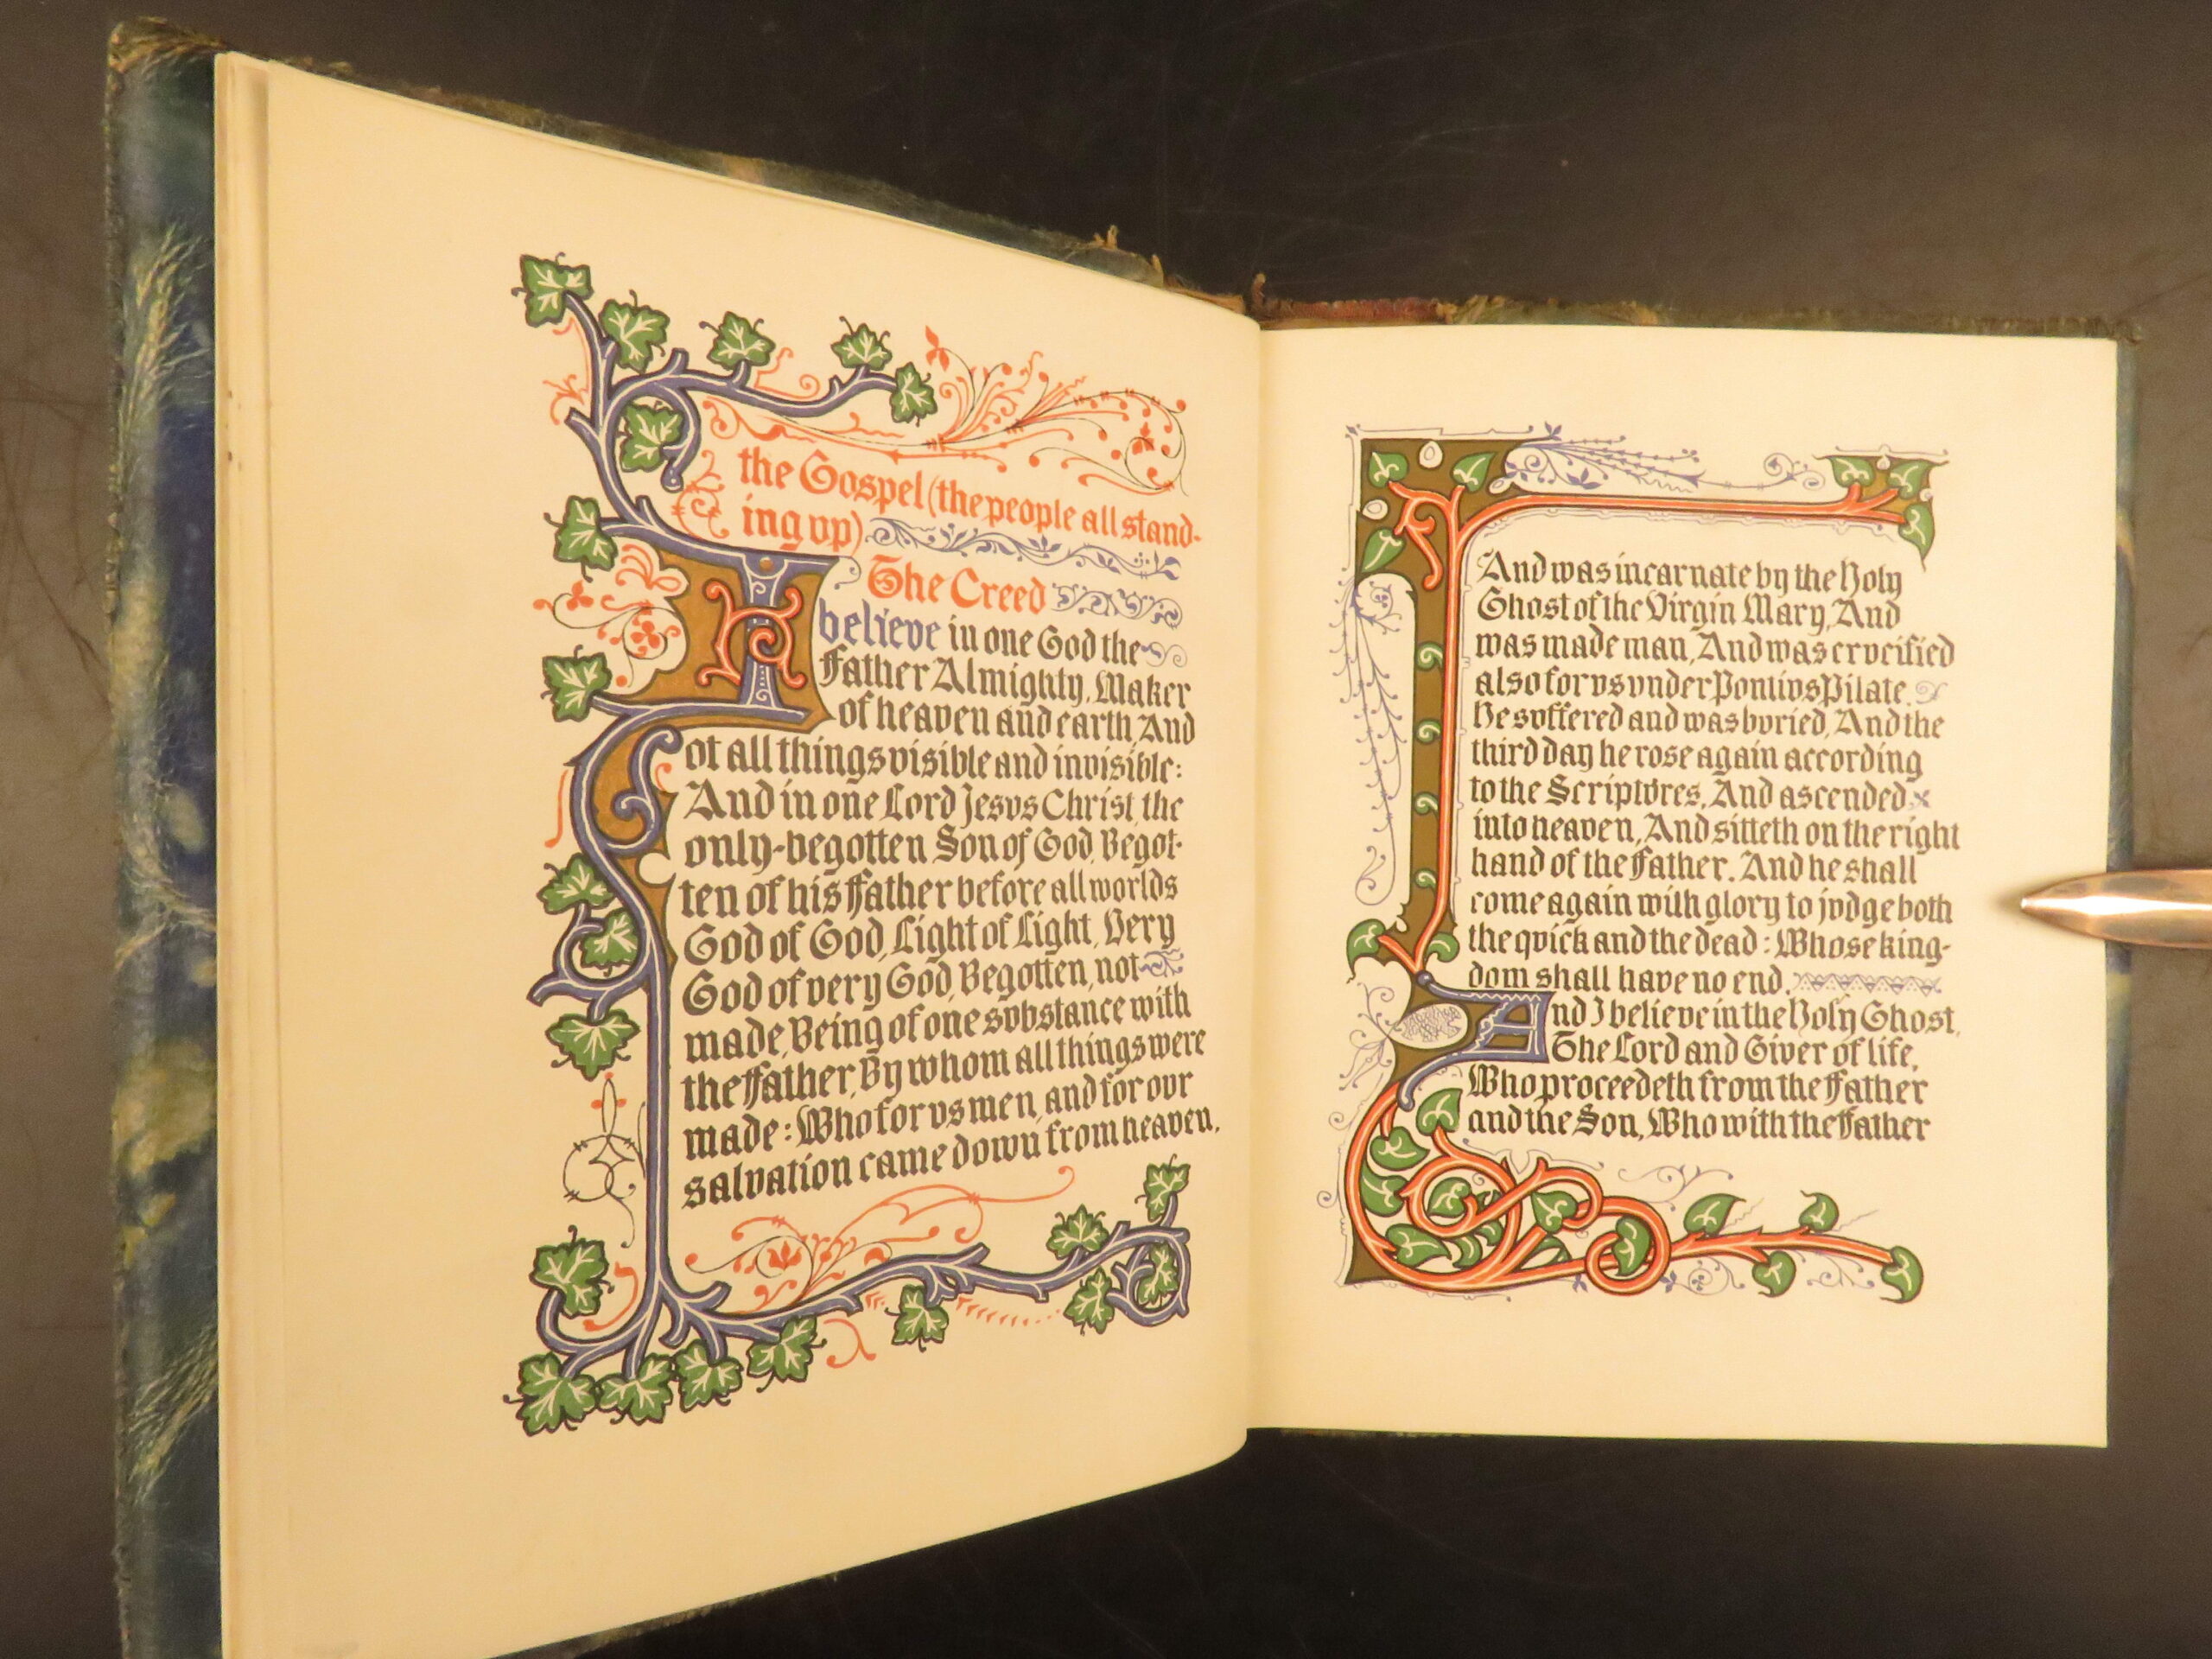 the Gospel (the people all stand-
ing vp)
The Creed
I believe in one God the
Father Almighty, Maker
of heaven and earth, And
of all things visible and invisible:
And in one Lord Jesvs Christ, the
only-begotten Son of God, Begot-
ten of his Father before all worlds
God of God, Light of Light, Very
God of very God, Begotten, not
made, Being of one svbstance with
the Father, By whom all things were
made: Who for vs men, and for ovr
salvation came down from heaven,
And was incarnate by the Holy
Ghost of the Virgin Mary, And
was made man, And was crvcified
also for vs vnder Pontivs Pilate.
He svffered and was bvried, And the
third day he rose again according
to the Scriptvres, And ascended
into heaven, And sitteth on the right
hand of the Father. And he shall
come again with glory to jvdge both
the qvick and the dead: Whose king-
dom shall have no end.
And I believe in the Holy Ghost,
The Lord and Giver of life,
Who proceedeth from the Father
and the Son, Who with the Father